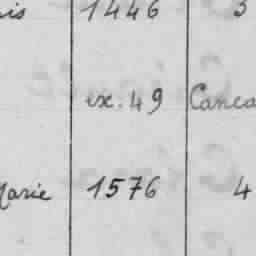 is 1446 3
ex. 49 Canca
Marie 1576 4